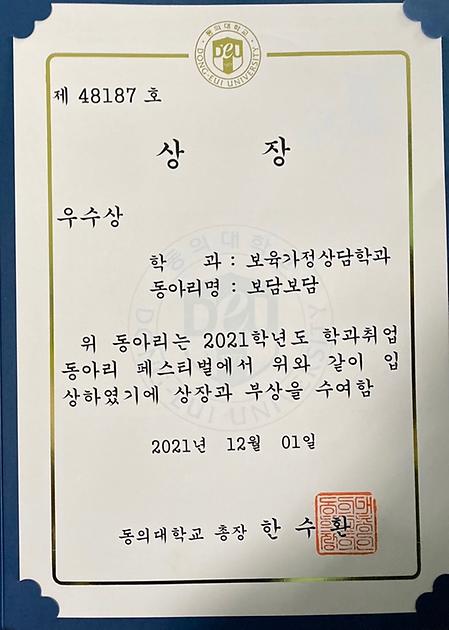 동의대학교
DEU
DONG-EUI UNIVERSITY
제 48187 호
상 장
우수상
학 과 : 보육가정상담학과
동아리명 : 보담보담
위 동아리는 2021학년도 학과취업
동아리 페스티벌에서 위와 같이 입
상하였기에 상장과 부상을 수여함
2021년 12월 01일
동의대학교 총장 한 수 환